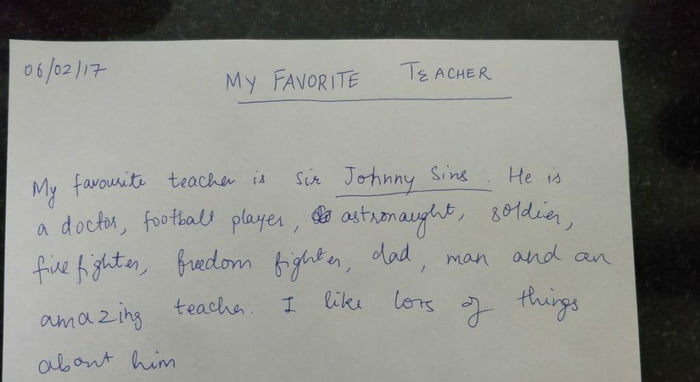 06/02/17
MY FAVORITE TEACHER
My favourite teacher is Sir Johnny Sins. He is
a doctor, football player, astronaught, soldier,
fire fighter, freedom fighter, dad, man and an
amazing teacher. I like lots of things
about him